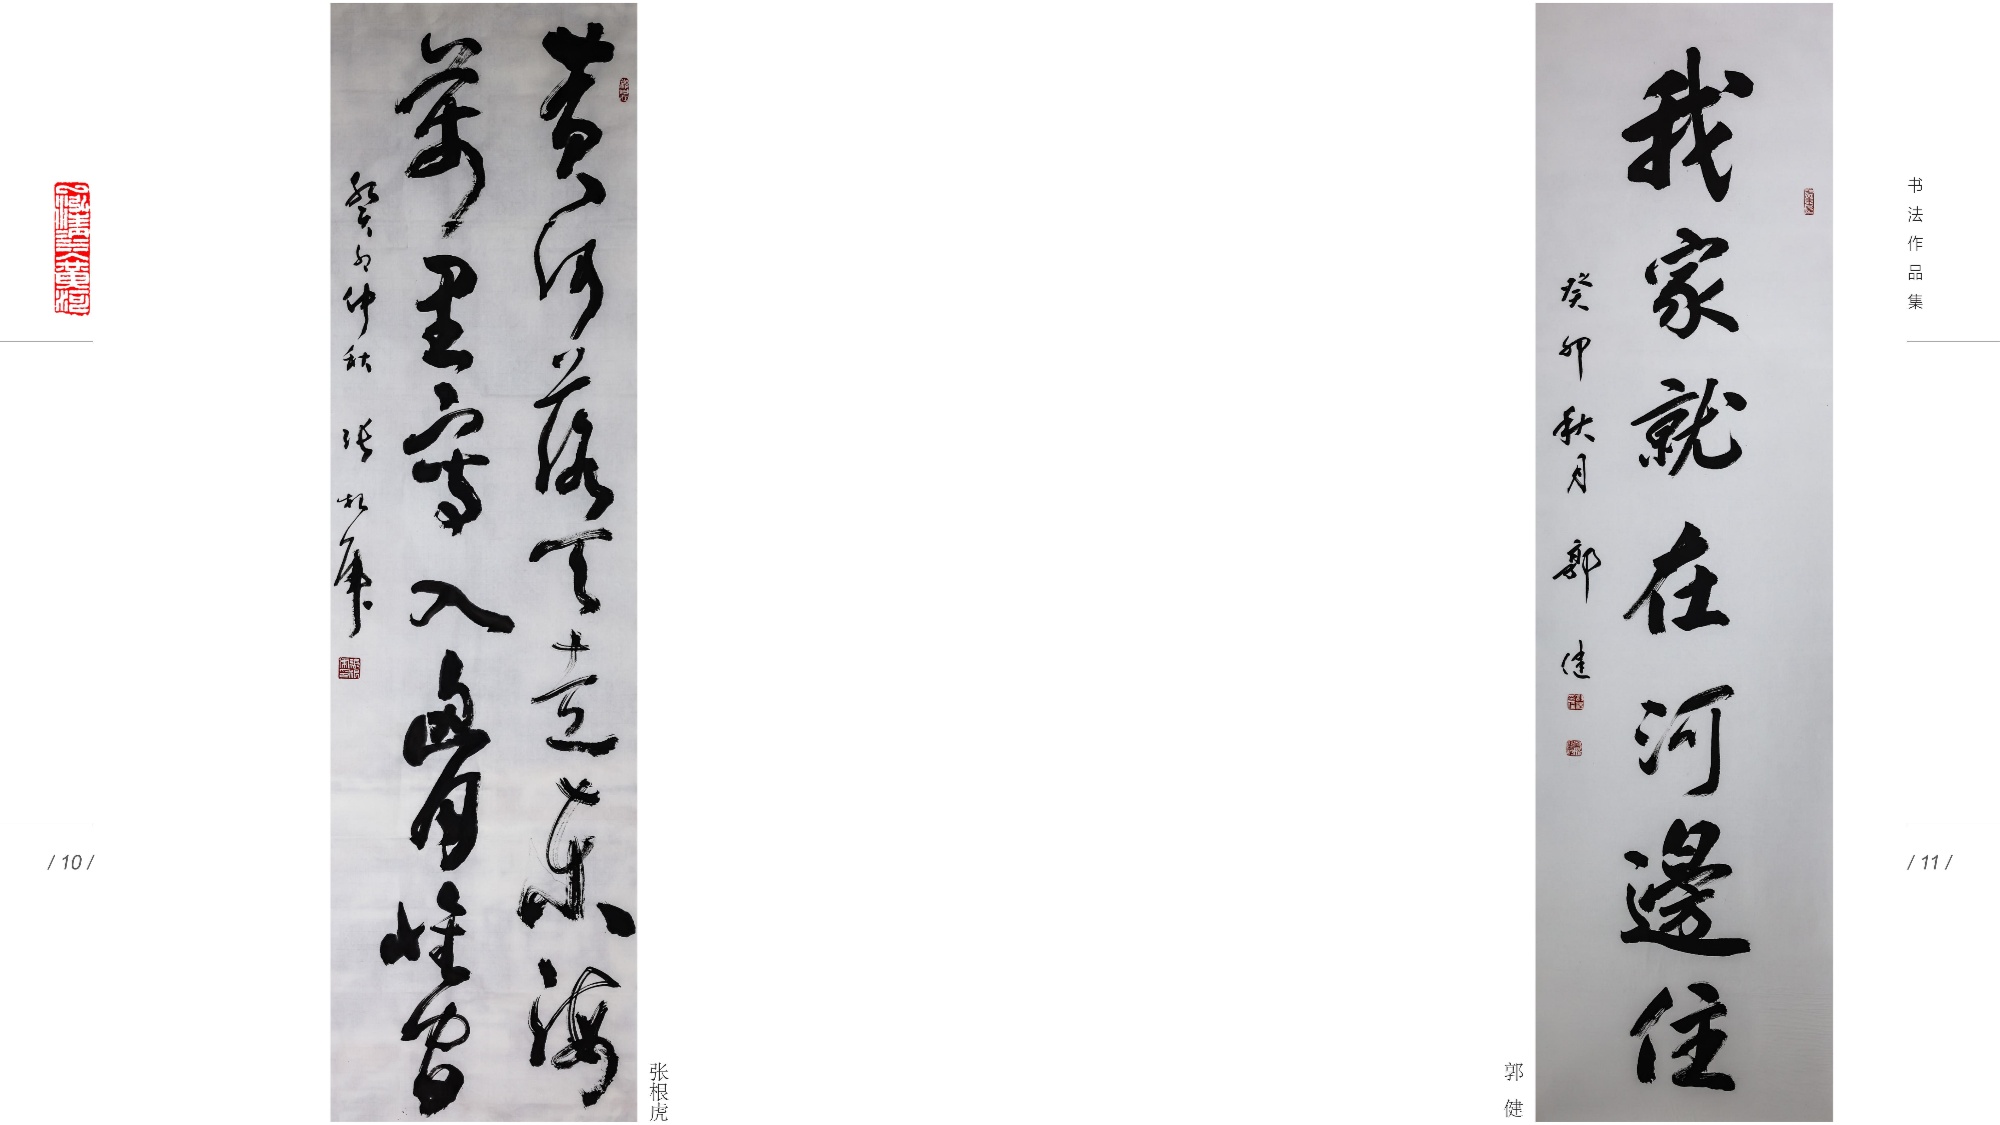 黄河落天走東海
萬里寫入胷懷間
癸卯仲秋 張根虎
张根虎
/ 10 /
我家就在河邊住
癸卯秋月 郭健
郭 健
书法作品集
/ 11 /